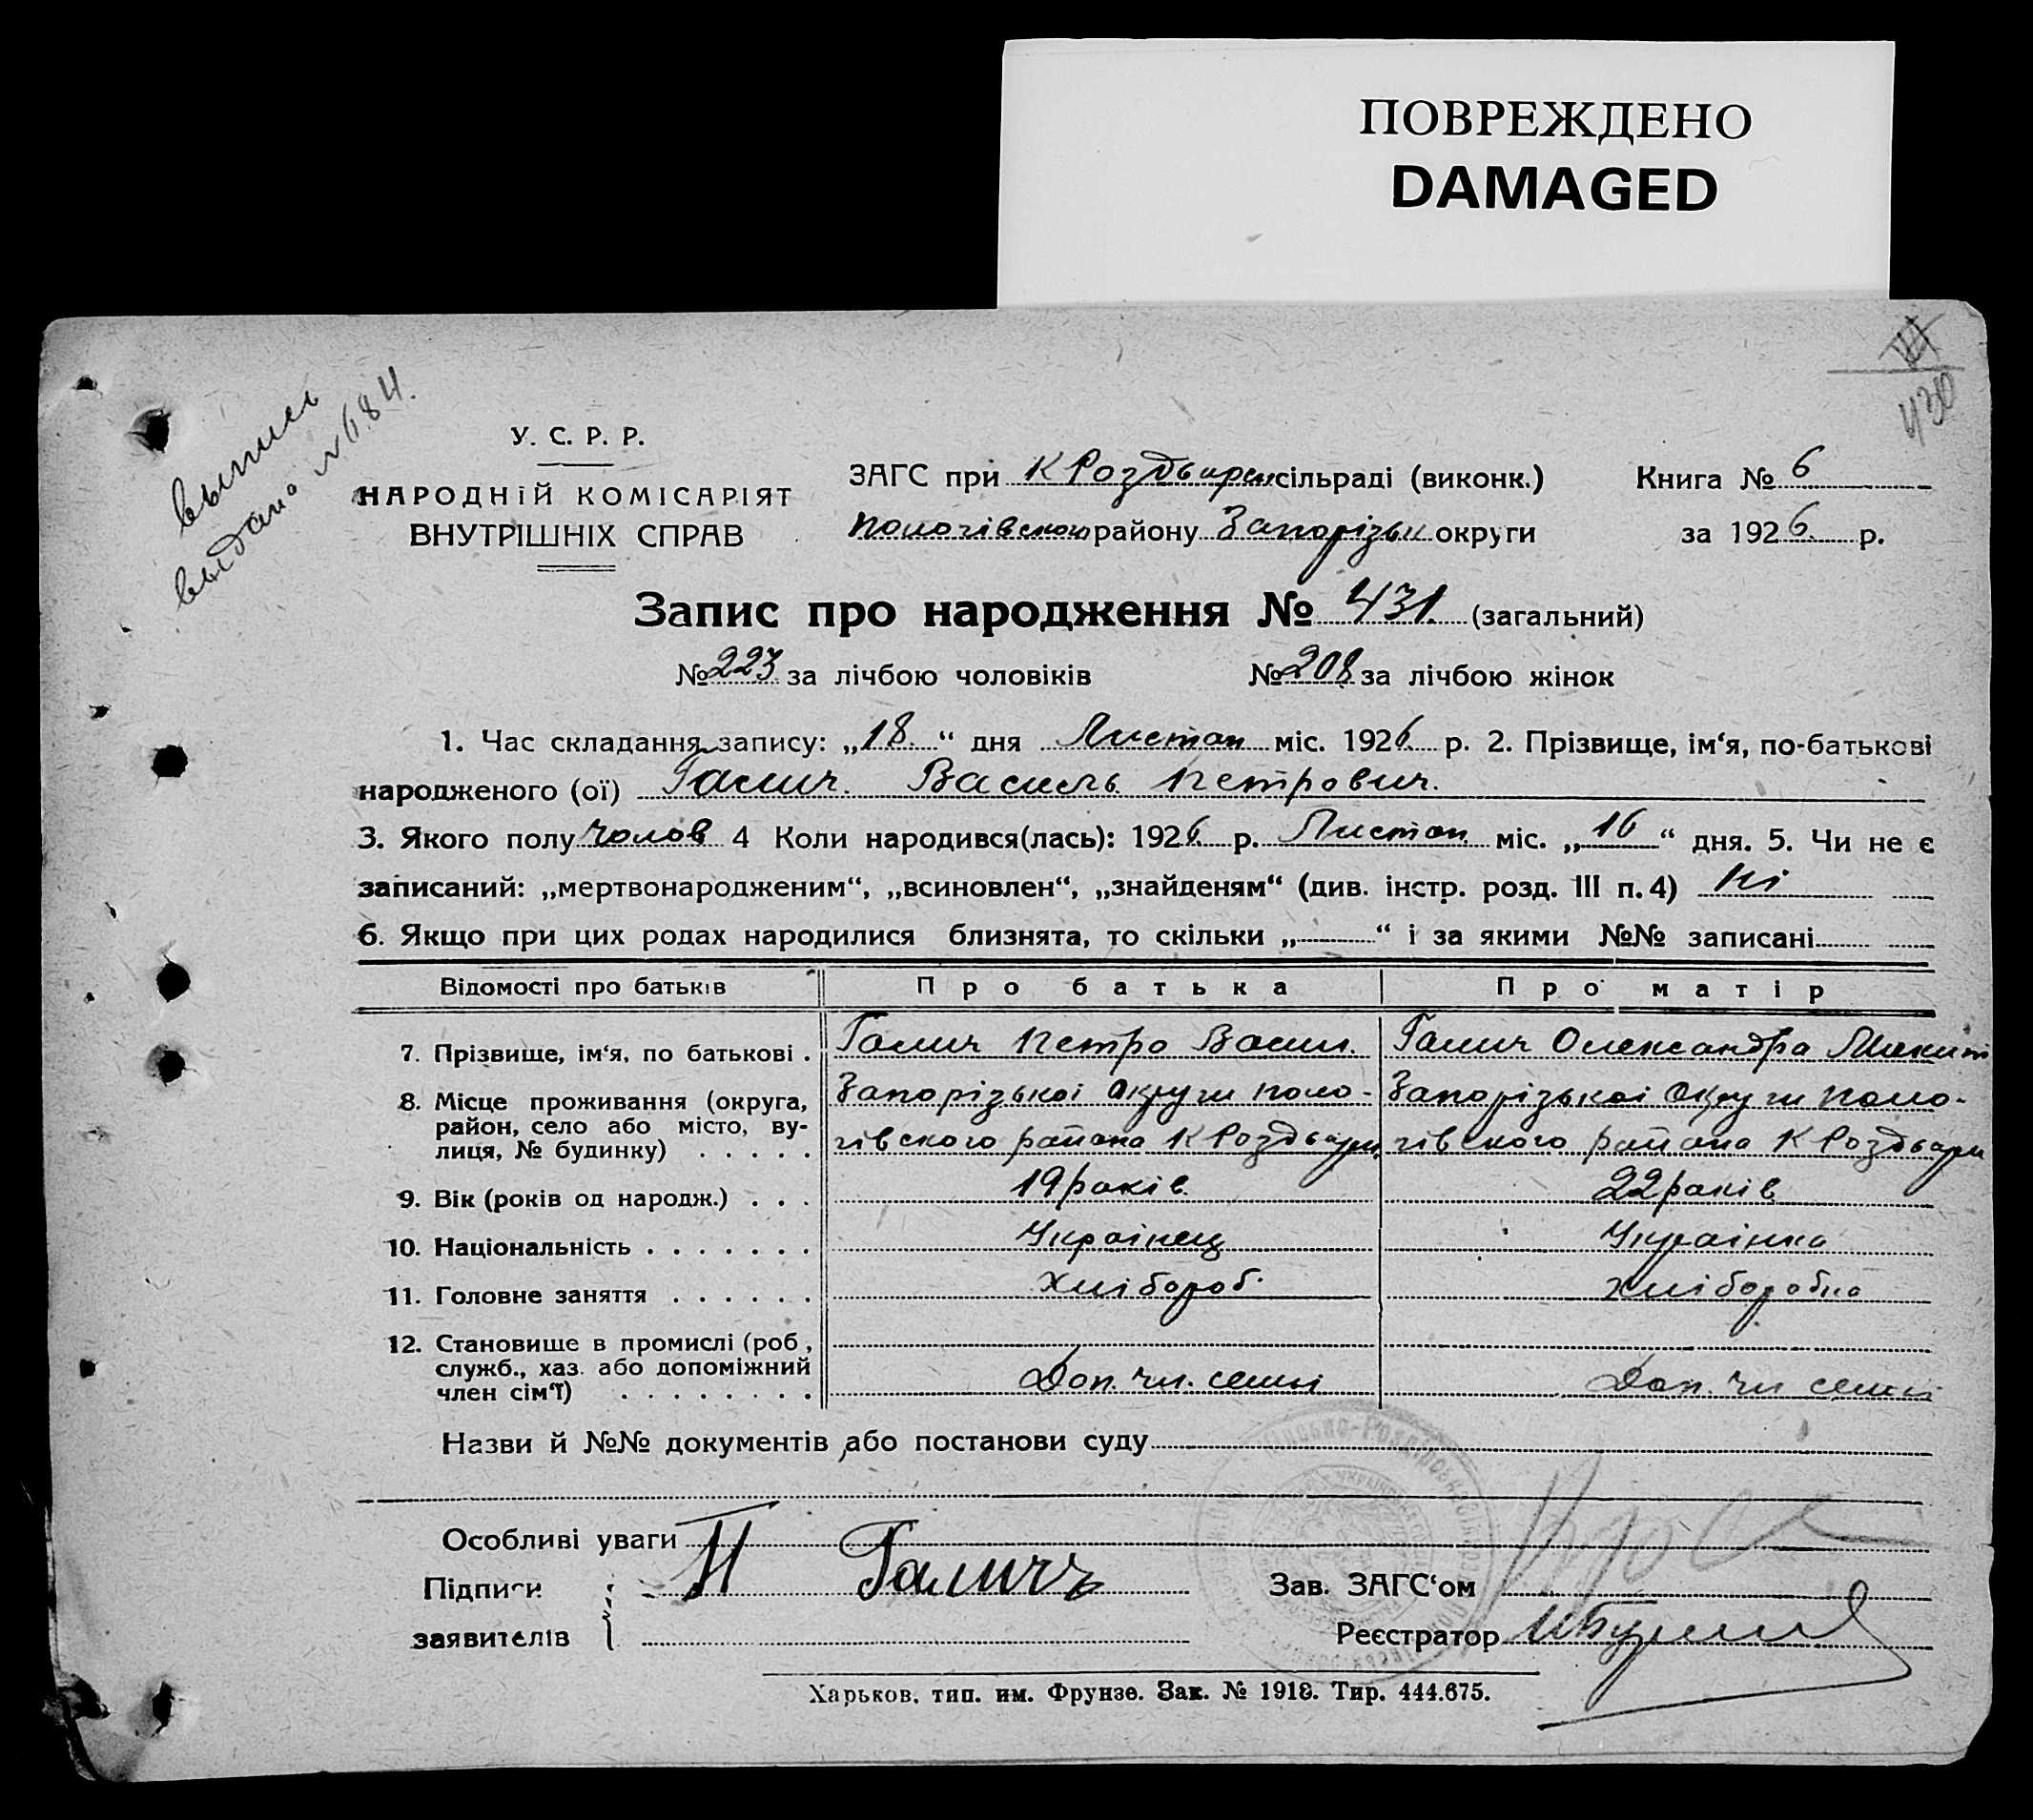 ПОВРЕЖДЕНО
DAMAGED
430
выпись
выдано №684.
У. С. Р. Р.
НАРОДНІЙ КОМІСАРІЯТ
ВНУТРІШНІХ СПРАВ
ЗАГС при К Роздьарсь сільраді (виконк.) Книга № 6
Пологівською району Запорізьк округи за 1926. р.
Запис про народження № 431. (загальний)
№ 223 за лічбою чоловіків № 208 за лічбою жінок
1. Час складання запису: „18.“ дня Листоп міс. 1926. р. 2. Прізвище, ім‘я, по-батькові
народженого (ої) Галич. Василь Петрович.
3. Якого полу чолов 4 Коли народився(лась): 1926. р. Листоп. міс. „16“ дня. 5. Чи не є
записаний: „мертвонародженим“, „всиновлен“, „знайденям“ (див. інстр. розд. III п. 4) Ні
6. Якщо при цих родах народилися близнята, то скільки „——“ і за якими №№ записані
Відомості про батьків Про батька Про матір
7. Прізвище, ім‘я, по батькові . Галич Петро Васил. Галич Олександра Микит
8. Місце проживання (округа, Запорізькоі Округи Поло- Запорізькоі Округи Поло-
район, село або місто, ву- гівского района К Роздьари гівского района К Роздьари
лиця, № будинку) . . . . .
9. Вік (років од народж.) . . . 19 років. 22 років
10. Національність . . . . . . . Украінец Украінка
11. Головне заняття . . . . . . Хлібороб. Хліборобка
12. Становище в промислі (роб,
служб., хаз. або допоміжний
член сім‘ї) . . . . . . . . Доп. чл. семьі Доп. чл семьі
Назви й №№ документів або постанови суду
Особливі уваги
Підписи П Галичъ Зав. ЗАГС‘ом
заявителів Реєстратор
Харьков, тип. им. Фрунзе. Зак. № 1918. Тир. 444.675.